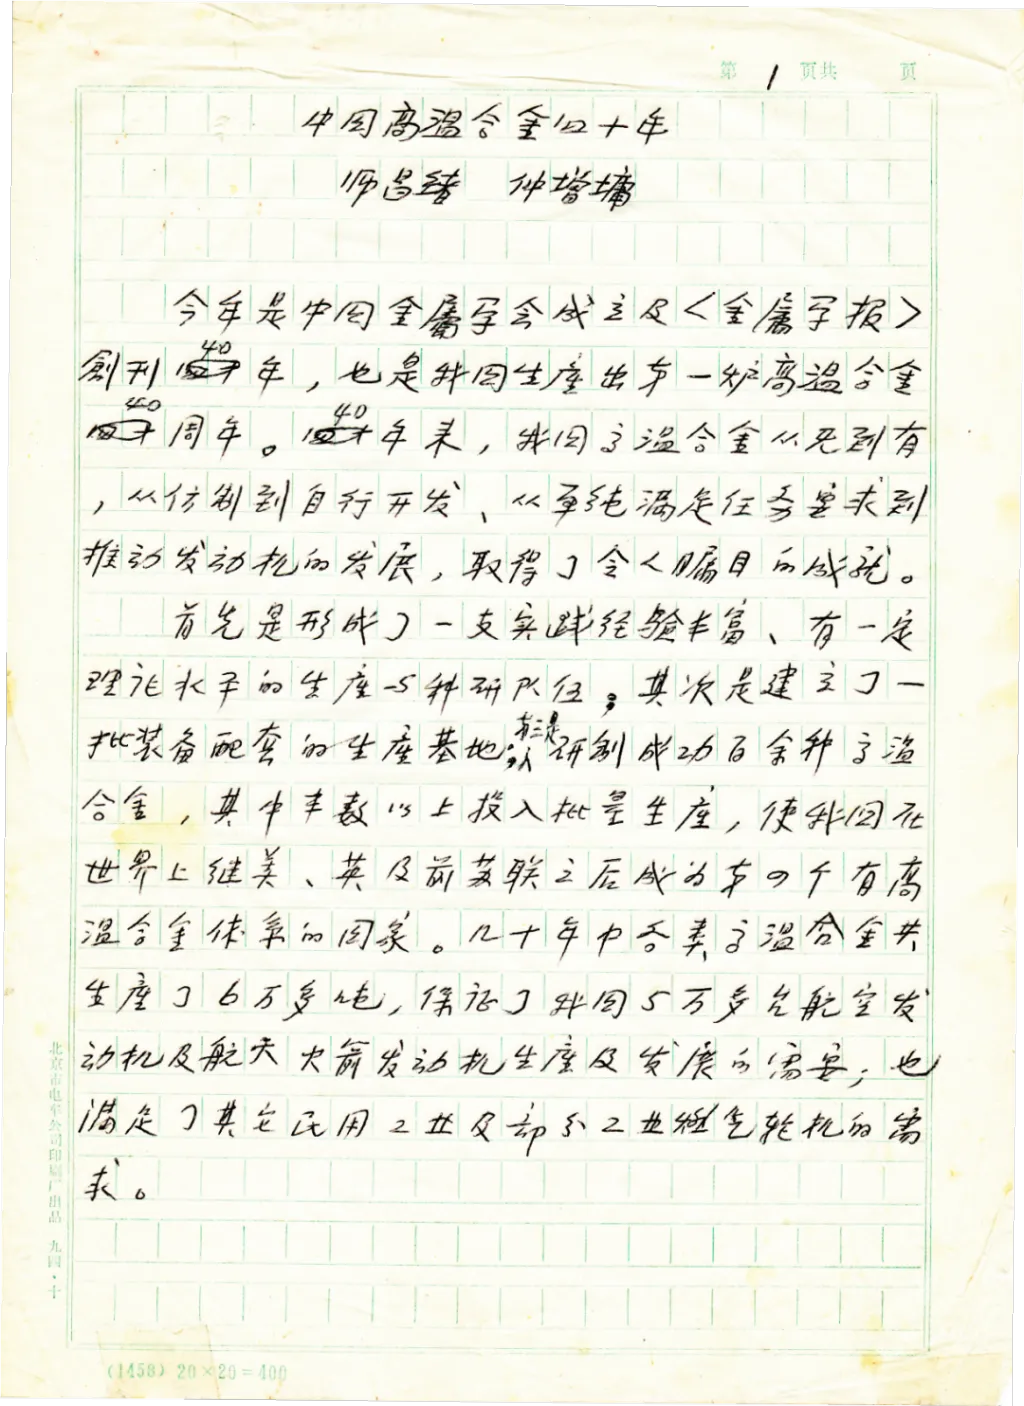 第 1 页共 页
中国高温合金四十年
师昌绪 仲增墉
今年是中国金属学会成立及<金属学报>
創刊40年，也是我国生産出第一炉高温合金
40周年。40年来，我国高温合金从无到有
，从仿制到自行开发、从单纯满足任务要求到
推动发动机的发展，取得了令人瞩目的成就。
首先是形成了一支实践经验丰富、有一定
理论水平的生産与科研队伍；其次是建立了一
批装备配套的生産基地；第三是研制成功百余种高温
合金，其中半数以上投入批量生産，使我国在
世界上继美、英及前苏联之后成为第四个有高
温合金体系的国家。几十年中各类高温合金共
生産了6万多吨，保证了我国5万多台航空发
动机及航天火箭发动机生産及发展的需要；也
满足了其它民用工业及部分工业燃气轮机的需
求。
北京市电车公司印刷厂出品 九四·十
(1458) 20×20=400